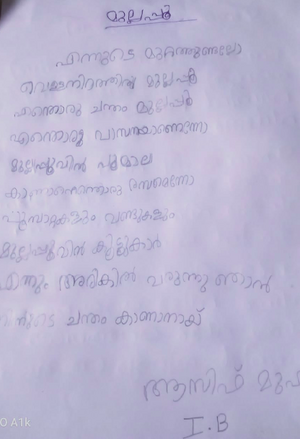 മുല്ലപ്പൂ
എന്നുടെ മുറ്റത്തുണ്ടലോ
വെള്ളനിറത്തിൽ മുല്ലപ്പൂ
എന്തൊരു ചന്തം മുല്ലപ്പൂ
എന്തൊരു വാസനയാണെന്നോ
മുല്ലപ്പൂവിൻ പൂമാല
കാണാനെന്തൊരു രസമെന്നോ
പൂമ്പാറ്റകളും വണ്ടുകളും
മുല്ലപ്പൂവിൻ കൂട്ടുകാർ
എന്നും അരികിൽ വരുന്നു ഞാൻ
ചന്തം കാണാനായ്
ആസിഫ്
I.B